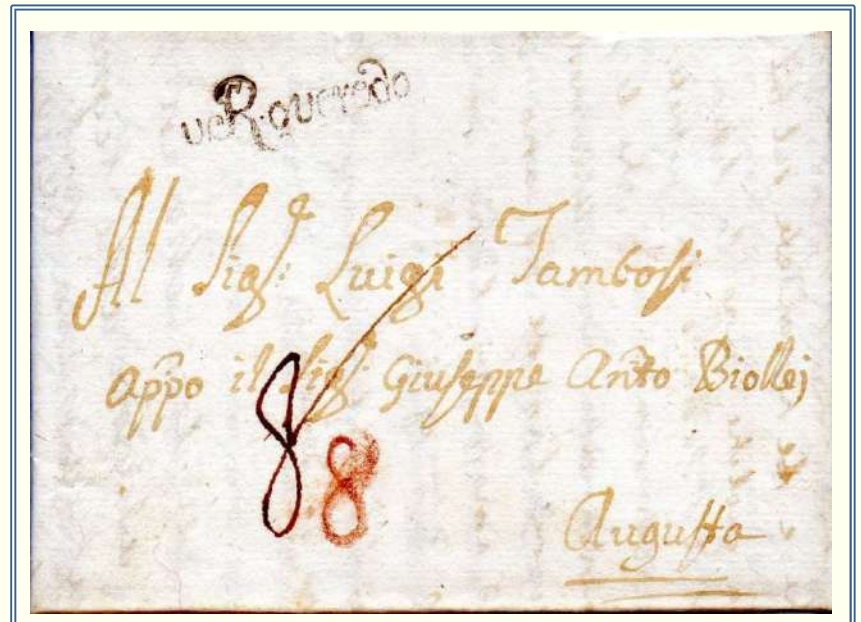 v. R. overedo
Al Sig.r Luigi Tambosi
appo il Sig.r Giuseppe Anto Biolley
8 8
Augusta